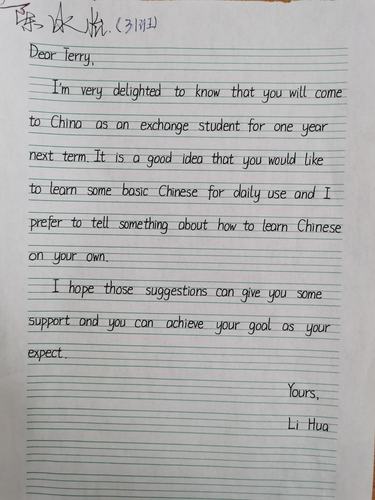 冰怡.(3班)
Dear Terry,
I'm very delighted to know that you will come
to China as an exchange student for one year
next term. It is a good idea that you would like
to learn some basic Chinese for daily use and I
prefer to tell something about how to learn Chinese
on your own.
I hope those suggestions can give you some
support and you can achieve your goal as your
expect.
Yours,
Li Hua